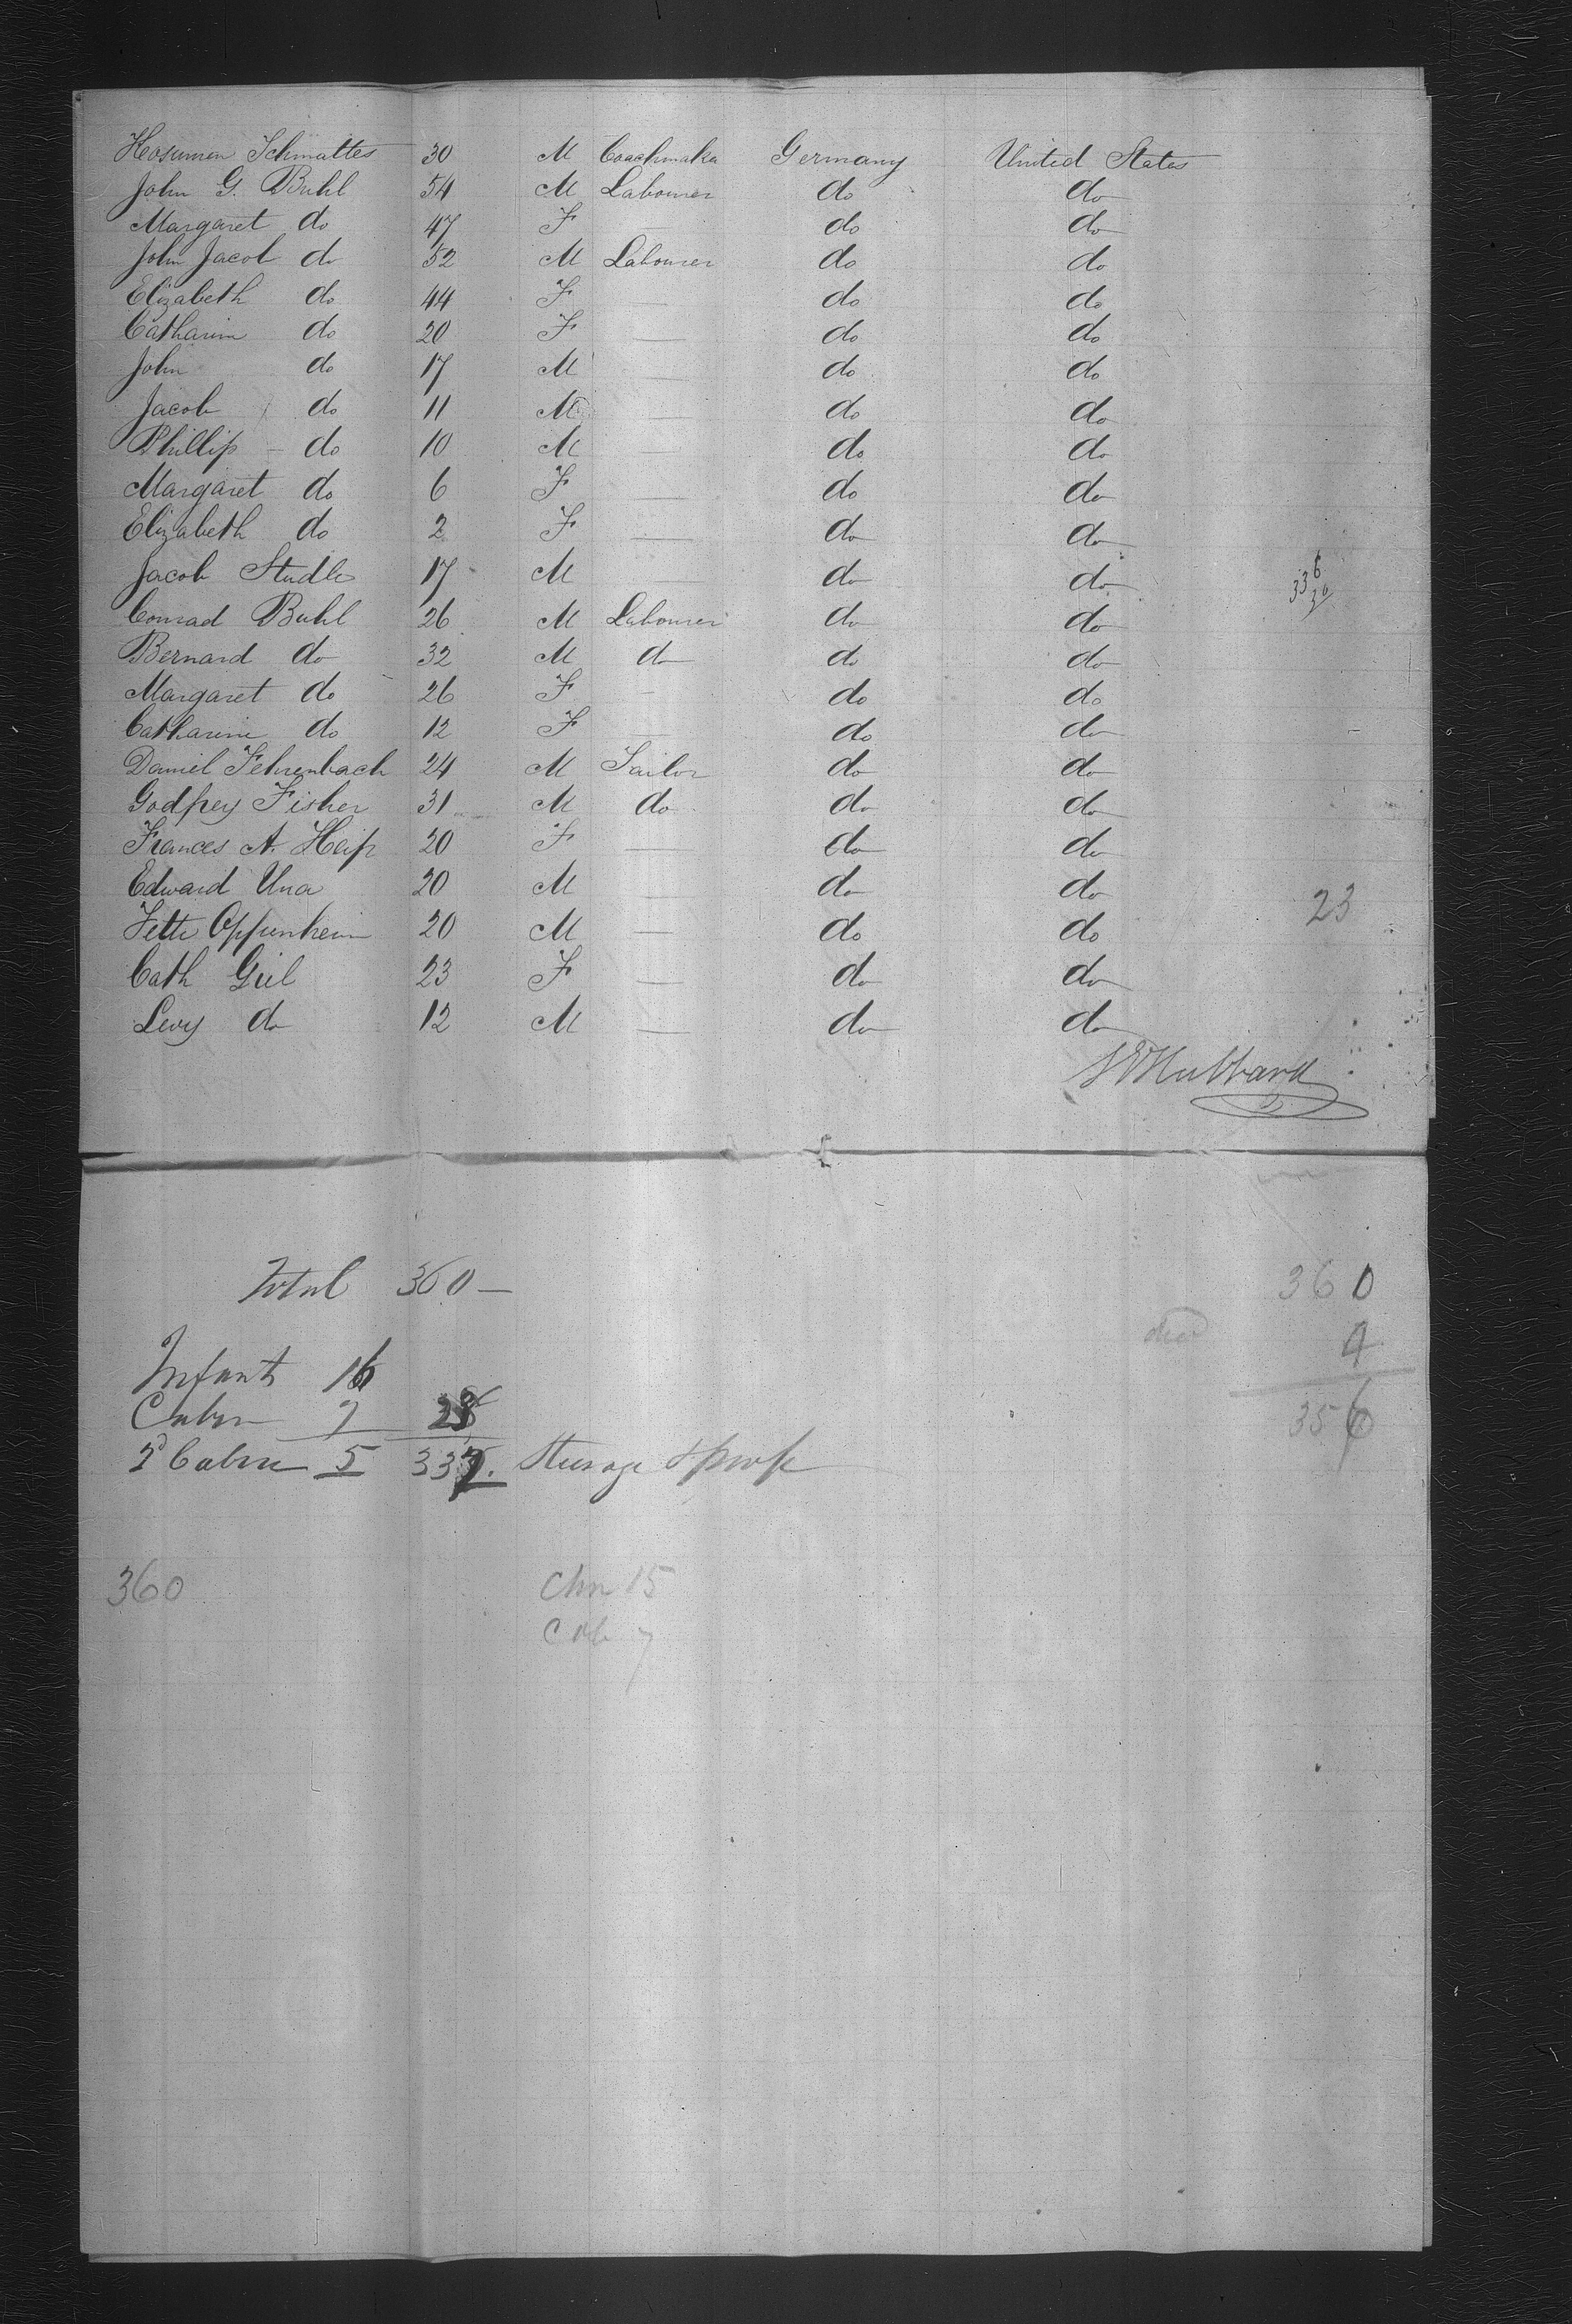 Hosuman Schmattes 30 M Coachmaker Germany United States
John G. Buhl 54 M Labourer do do
Margaret do 47 F do do
John Jacob do 52 M Labourer do do
Elizabeth do 44 F — do do
Catharin do 20 F — do do
John do 17 M — do do
Jacob do 11 M — do do
Phillip do 10 M — do do
Margaret do 6 F — do do
Elizabeth do 2 F — do do
Jacob 17 M — do do
336
Conrad Buhl 26 M Labourer do do
Bernard do 32 M do do do
Margaret do 26 F — do do
Catharine do 12 F — do do
Daniel Fehrenbach 24 M Tailor do do
Godfrey Fisher 31 M do do do
Frances A. 20 F — do do
Edward Una 20 M — do do 23
Oppenheim 20 M — do do
Cath Giel 23 F — do do
Levy do 12 M — do do
Hubbard
Total 360 — 360
4
Infants 16
Cabin 7 28 356
2d Cabin 5 332. Steerage
360 Chn 15
Cab 7